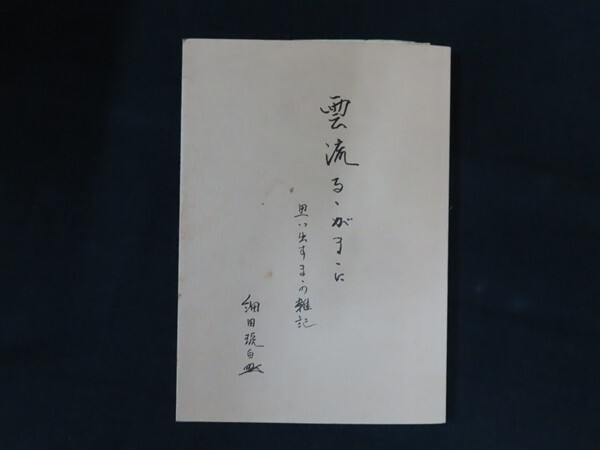 雲流るゝがまゝに
思い出すまゝの雑記
細田